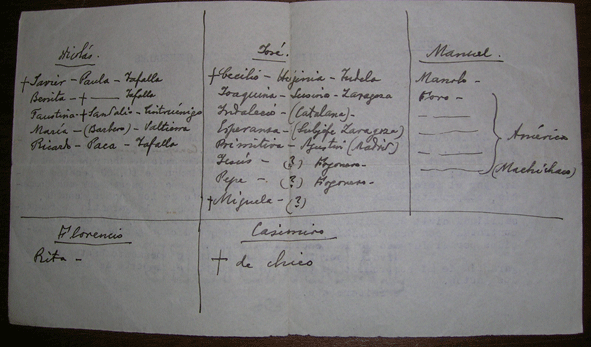 Nicolás.
+ Javier - Paula - Tafalla
Benita - + —— Tafalla
Faustina + Sandalio - Cintruénigo
María - (Barbero) - Valtierra
Ricardo - Paca - Tafalla
José.
+ Cecilio - Higinia - Tudela
Joaquina - - Zaragoza
Indalecio - (Catalana) -
Esperanza - ( Zaragoza)
Primitiva - Agustín (Madrid)
Jesús - (?)
Pepe - (?)
+ Miguela - (?)
Manuel.
Manolo -
Floro -
América
(Machichaco)
Florencio
Rita -
Casimiro
+ de chico